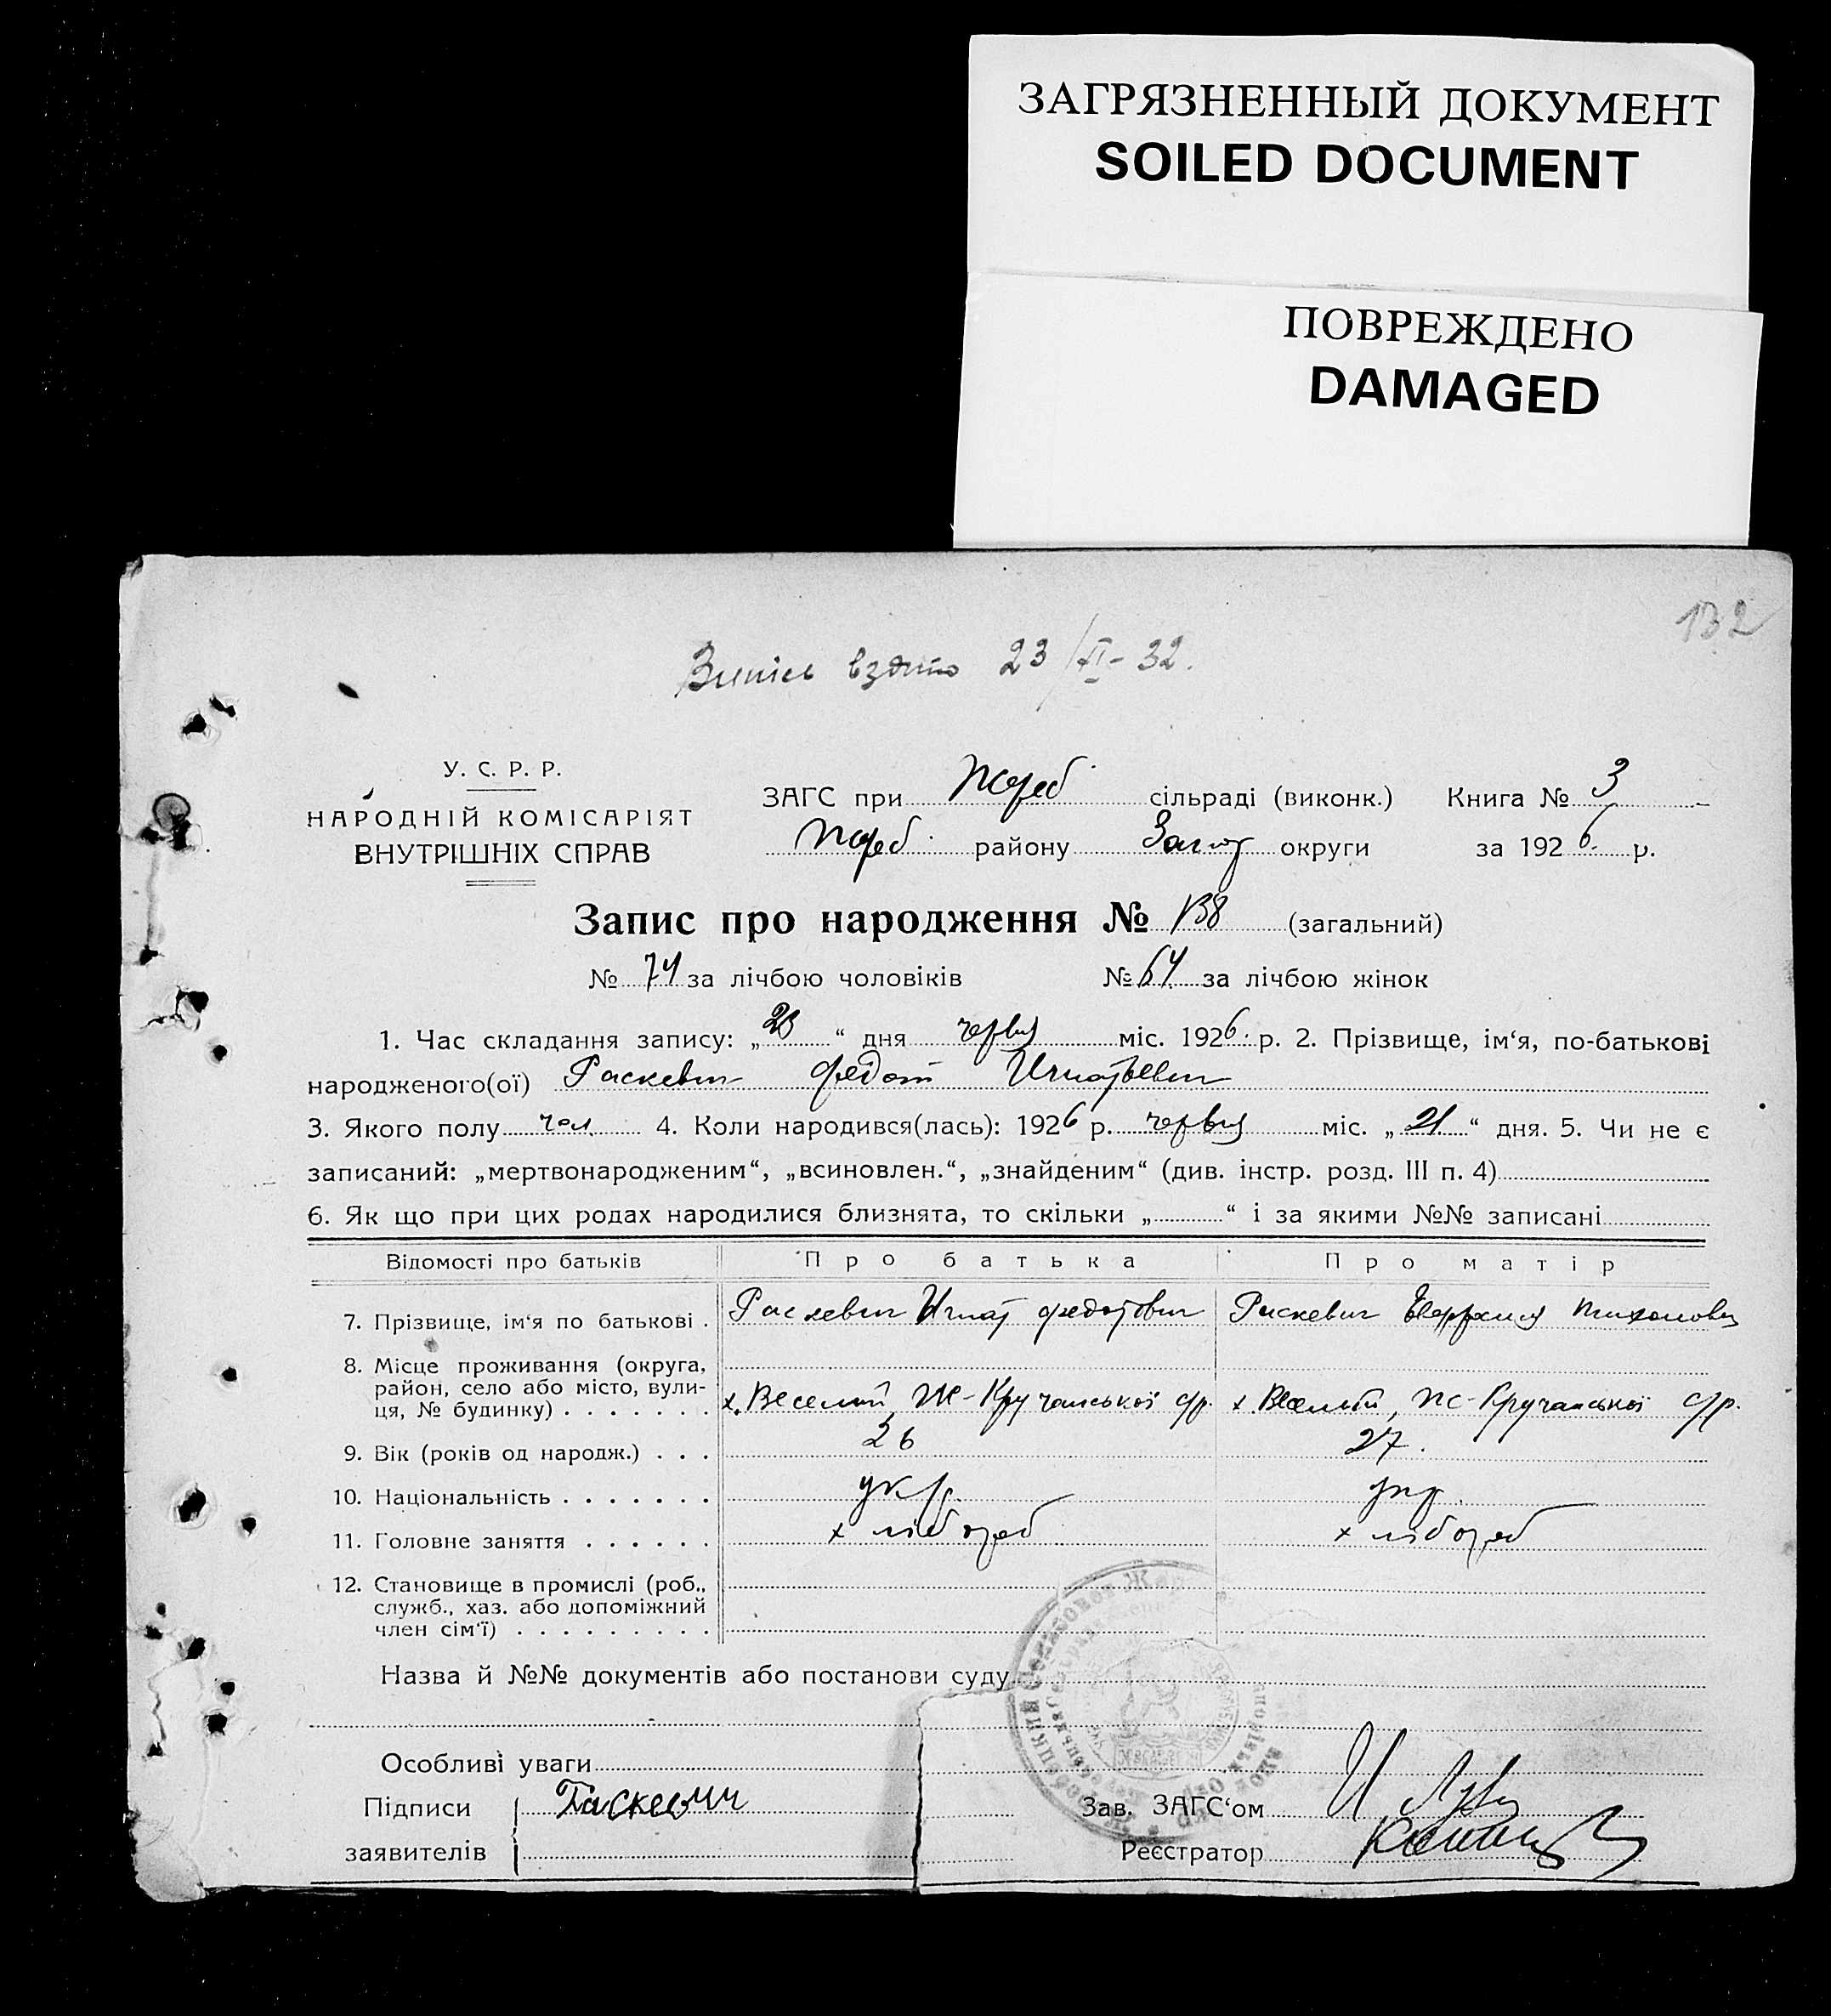 ЗАГРЯЗНЕННЫЙ ДОКУМЕНТ
SOILED DOCUMENT
ПОВРЕЖДЕНО
DAMAGED
132
23/VI-32.
У. С. Р. Р.
НАРОДНІЙ КОМІСАРІЯТ
ВНУТРІШНІХ СПРАВ
ЗАГС при Жереб. сільраді (виконк.) Книга № 3
Жереб. району Запор округи за 1926 р.
Запис про народження № 138 (загальний)
№ 74 за лічбою чоловіків № 64 за лічбою жінок
1. Час складання запису: „23“ дня червня міс. 1926 р. 2. Прізвище, ім‘я, по-батькові
народженого(ої) Раскевич Федот Игнатьевич
3. Якого полу чол. 4. Коли народився(лась): 1926 р. червня міс. „21“ дня. 5. Чи не є
записаний: „мертвонародженим“, „всиновлен.“, „знайденим“ (див. інстр. розд. III п. 4)
6. Як що при цих родах народилися близнята, то скільки „ “ і за якими №№ записані
Відомості про батьків Про батька Про матір
7. Прізвище, ім‘я по батькові . Раскевич Игнат Федотович Раскевич Тихоновна
8. Місце проживання (округа,
район, село або місто, вули-
ця, № будинку) . . . . . . . х. Веселий, -Кручанської с/р. х. Веселий, -Кручанської с/р.
9. Вік (років од народж.) . . . 26 27.
10. Національність . . . . . . . укр. укр.
11. Головне заняття . . . . . . хлібороб хлібороб
12. Становище в промислі (роб.,
служб., хаз. або допоміжний
член сім‘ї) . . . . . . . . .
Назва й №№ документів або постанови суду
Особливі уваги
Підписи Раскевич Зав. ЗАГС‘ом
заявителів Реєстратор